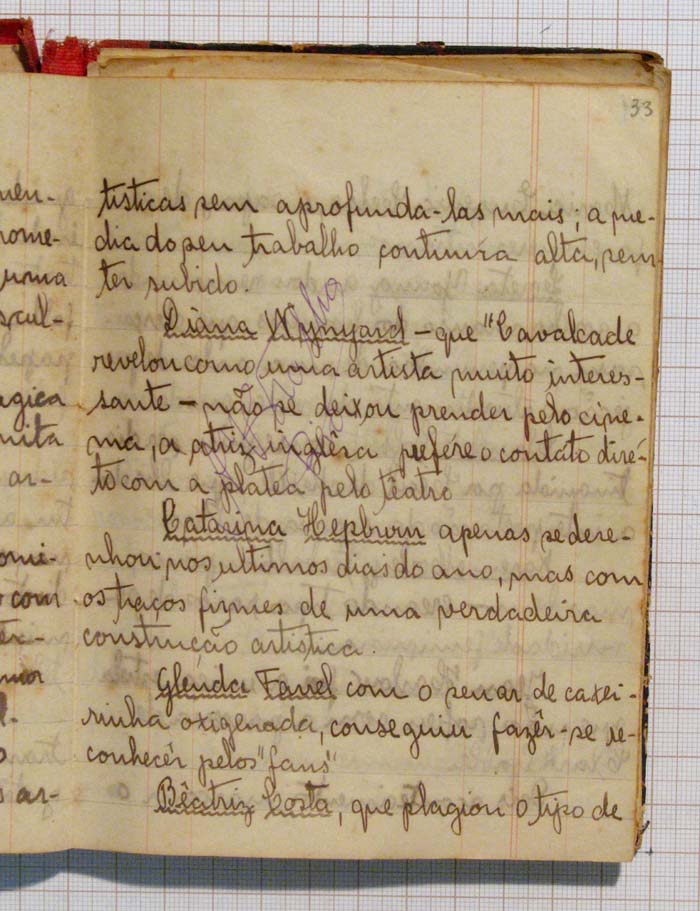 33
tisticas sem aprofunda-las mais; a me-
dia do seu trabalho continúa alta, sem
ter subido.
Diana Wynyard – que "Cavalcade
revelou como uma artista muito interes-
sante – não se deixou prender pelo cine-
ma, a atriz inglêsa prefére o contato diré-
to com a platea pelo têatro
Catarina Hepburn apenas se dese-
nhou nos ultimos dias do ano, mas com
os traços firmes de uma verdadeira
construcção artistica.
Glenda Farrel com o seu ar de caxei-
rinha oxigenada, conseguiu fazêr-se re-
conhecêr pelos "fans"
Bêatriz Costa, que plagiou o tipo de
uen-
nome-
uma
scul-
agica
nita
ar-
omi-
com
têr-
mor
ar-